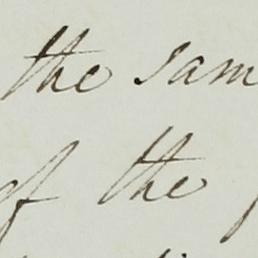 the sam
of the